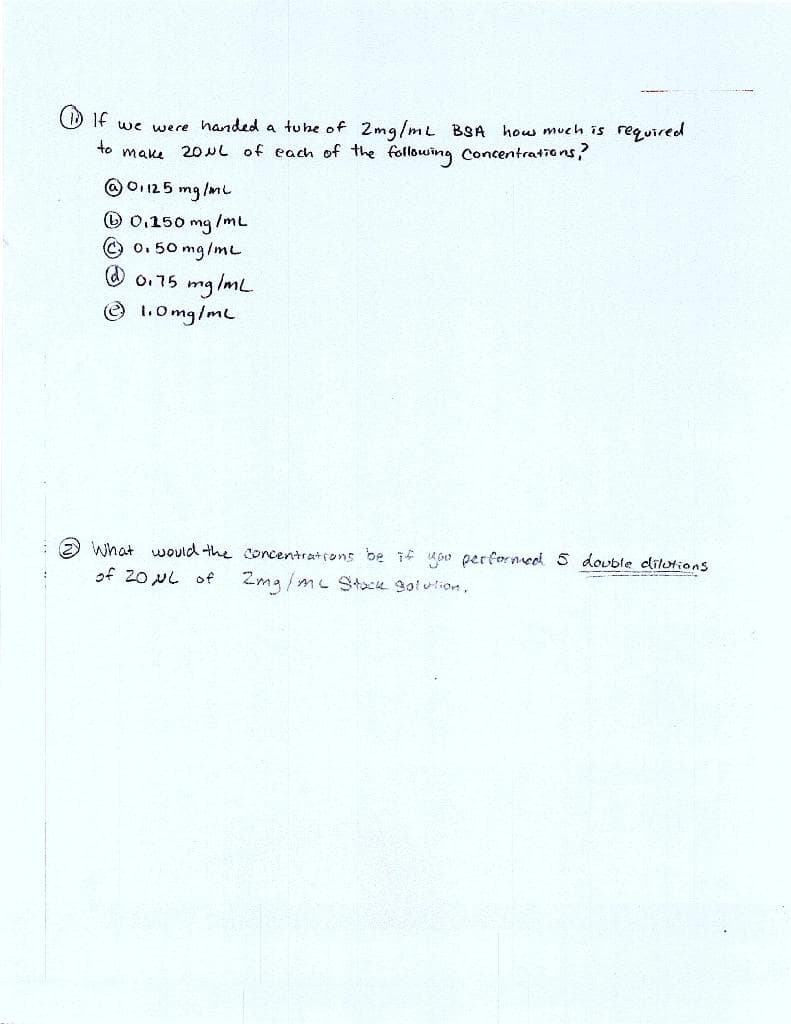 ① If we were handed a tube of 2mg/mL BSA how much is required
to make 20µL of each of the following concentrations?
ⓐ 0.125 mg/mL
ⓑ 0.150 mg/mL
ⓒ 0.50 mg/mL
ⓓ 0.75 mg/mL
ⓔ 1.0 mg/mL
② What would the concentrations be if you performed 5 double dilutions
of 20 µL of 2mg/mL Stock Solution.